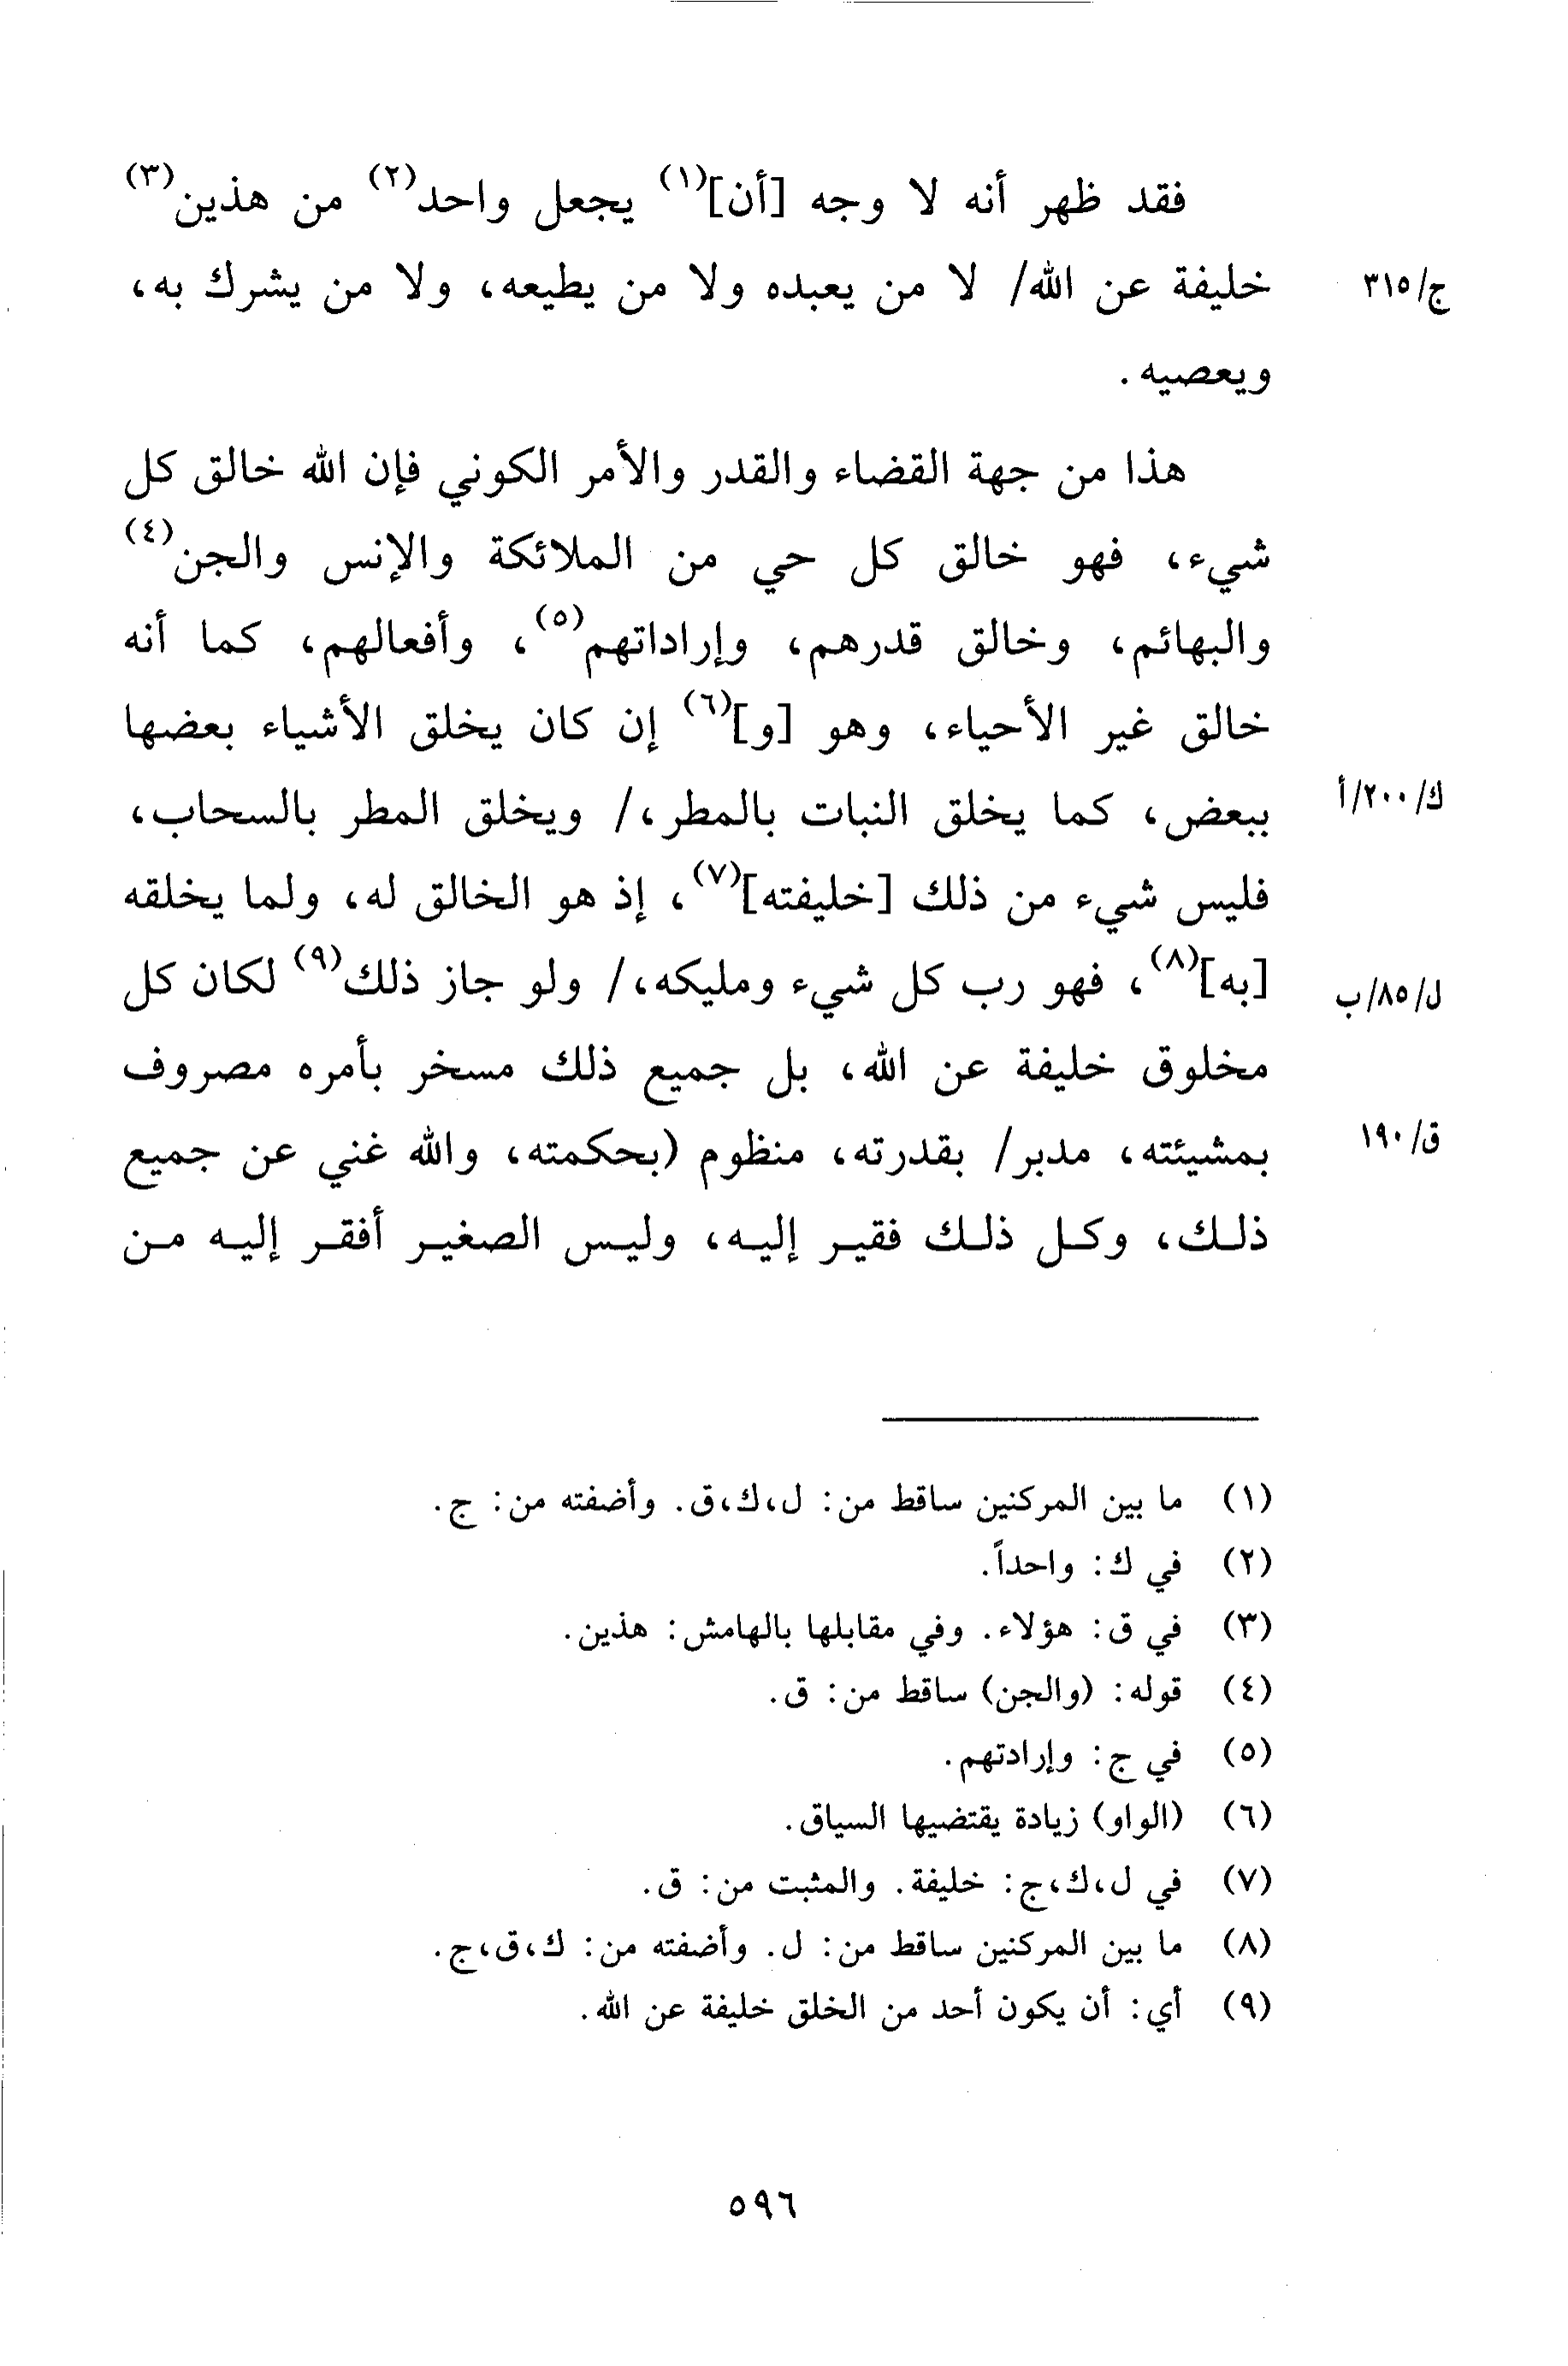 فقد ظهر أنه لا وجه [أن](١) يجعل واحد(٢) من هذين(٣)
خليفة عن الله/ لا من يعبده ولا من يطيعه، ولا من يشرك به،
ج/٣١٥
ويعصيه.
هذا من جهة القضاء والقدر والأمر الكوني فإن الله خالق كل
شيء، فهو خالق كل حي من الملائكة والإنس والجن(٤)
والبهائم، وخالق قدرهم، وإراداتهم(٥)، وأفعالهم، كما أنه
خالق غير الأحياء، وهو [و](٦) إن كان يخلق الأشياء بعضها
ببعض، كما يخلق النبات بالمطر،/ ويخلق المطر بالسحاب،
ك/٢٠٠/أ
فليس شيء من ذلك [خليفته](٧)، إذ هو الخالق له، ولما يخلقه
[به](٨)، فهو رب كل شيء ومليكه،/ ولو جاز ذلك(٩) لكان كل
ل/٨٥/ب
مخلوق خليفة عن الله، بل جميع ذلك مسخر بأمره مصروف
بمشيئته، مدبر/ بقدرته، منظوم (بحكمته، والله غني عن جميع
ق/١٩٠
ذلك، وكل ذلك فقير إليه، وليس الصغير أفقر إليه من
(١) ما بين المركنين ساقط من: ل،ك،ق. وأضفته من: ج.
(٢) في ك: واحداً.
(٣) في ق: هؤلاء. وفي مقابلها بالهامش: هذين.
(٤) قوله: (والجن) ساقط من: ق.
(٥) في ج: وإرادتهم.
(٦) (الواو) زيادة يقتضيها السياق.
(٧) في ل،ك،ج: خليفة. والمثبت من: ق.
(٨) ما بين المركنين ساقط من: ل. وأضفته من: ك،ق،ج.
(٩) أي: أن يكون أحد من الخلق خليفة عن الله.
٥٩٦